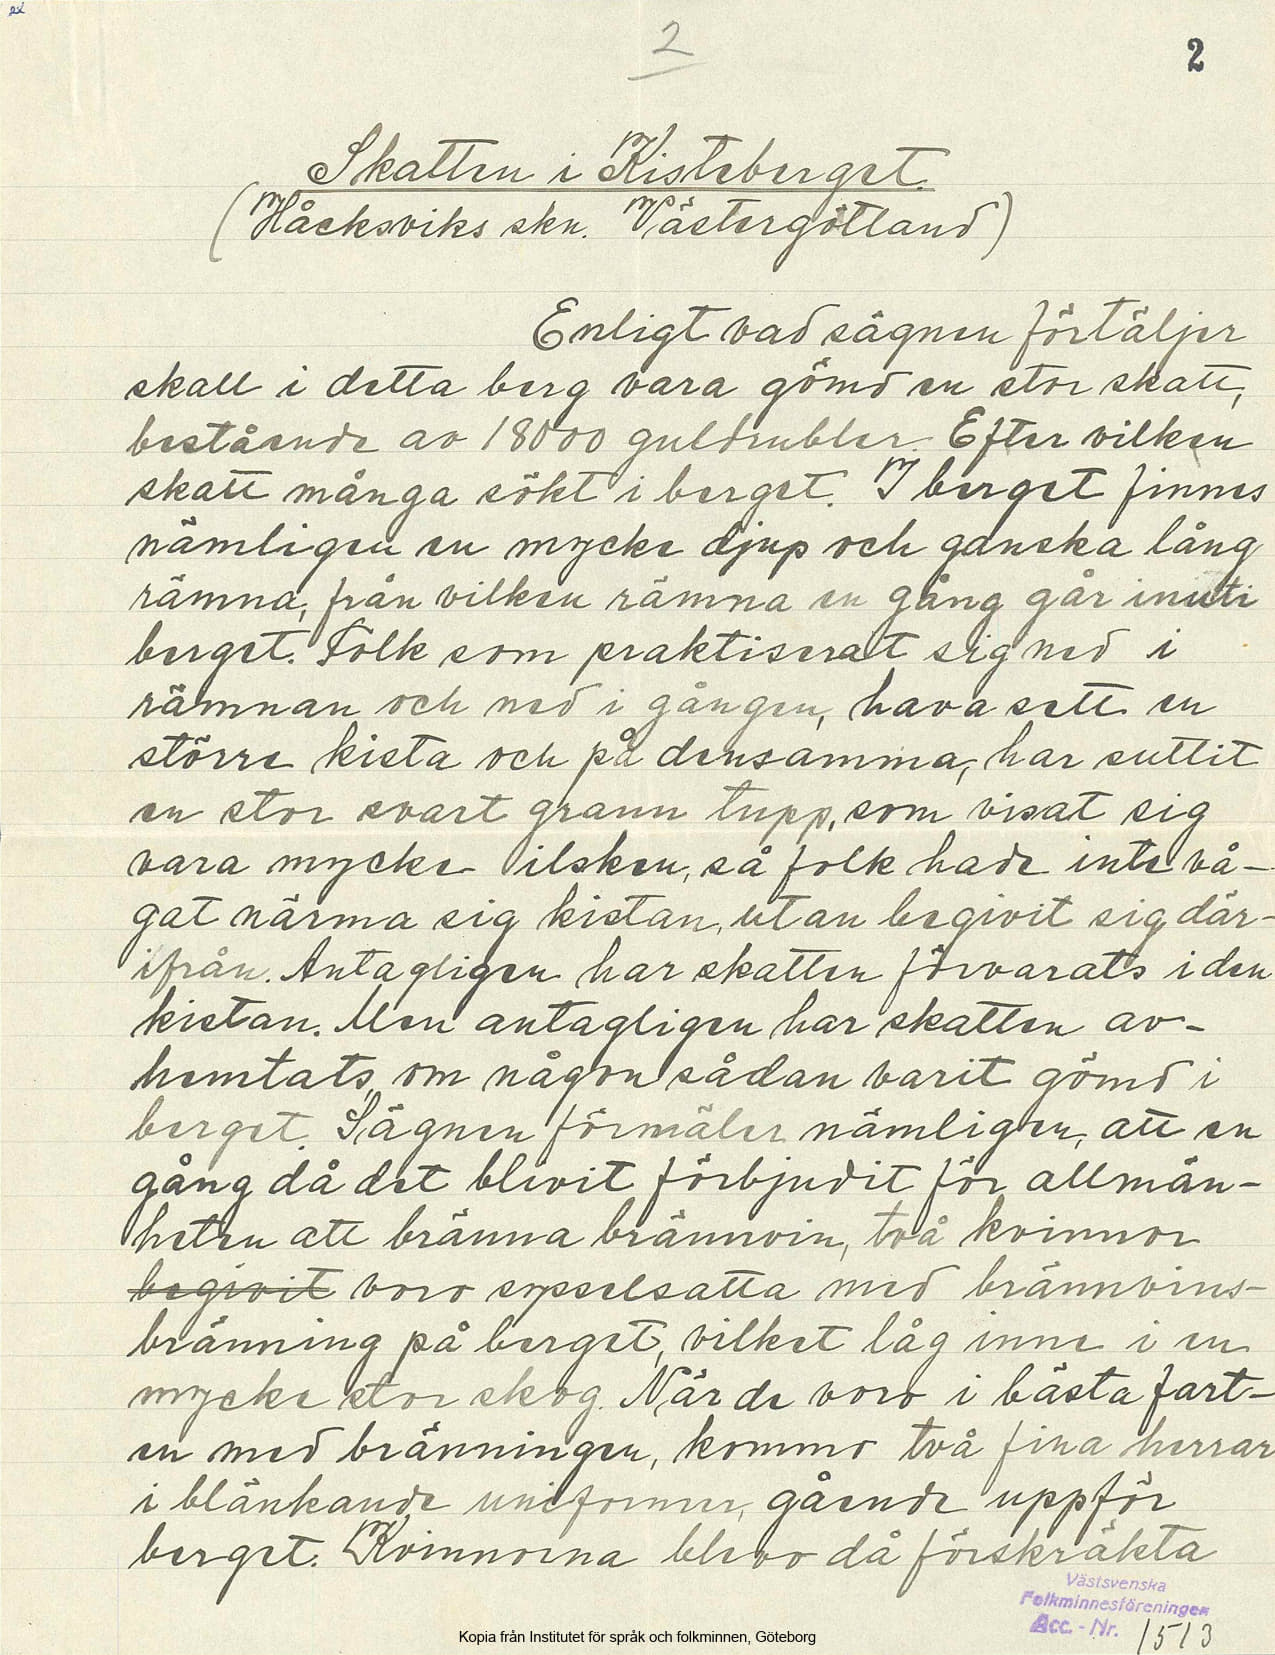 2
2
Skatten i Kisteberget.
(Håcksviks skn. Västergötland)
Enligt vad sägnen förtäljer
skall i detta berg vara gömd en stor skatt,
bestående av 18000 guldrubler. Efter vilken
skatt många sökt i berget. I berget finnes
nämligen en mycke djup och ganska lång
rämna, från vilken rämna en gång går inuti
berget. Folk som praktiserat sig ned i
rämnan och ned i gången, hava sett en
större kista och på densamma, har suttit
en stor svart grann tupp, som visat sig
vara mycke ilsken, så folk hade inte vå-
gat närma sig kistan, utan begivit sig där-
ifrån. Antagligen har skatten förvarats i den
kistan. Men antagligen har skatten av-
hemtats, om någon sådan varit gömd i
berget. Sägnen förmäler nämligen, att en
gång då det blivit förbjudit för allmän-
heten att bränna brännvin, två kvinnor
begivit voro sysselsatta med brännvins-
bränning på berget, vilket låg inne i en
mycke stor skog. När de voro i bästa fart-
en med bränningen, kommo två fina herrar
i blänkande uniformer, gående uppför
berget. Kvinnorna blevo då förskräkta
Västsvenska
Folkminnesföreningen
Acc.-Nr. 1513
Kopia från Institutet för språk och folkminnen, Göteborg